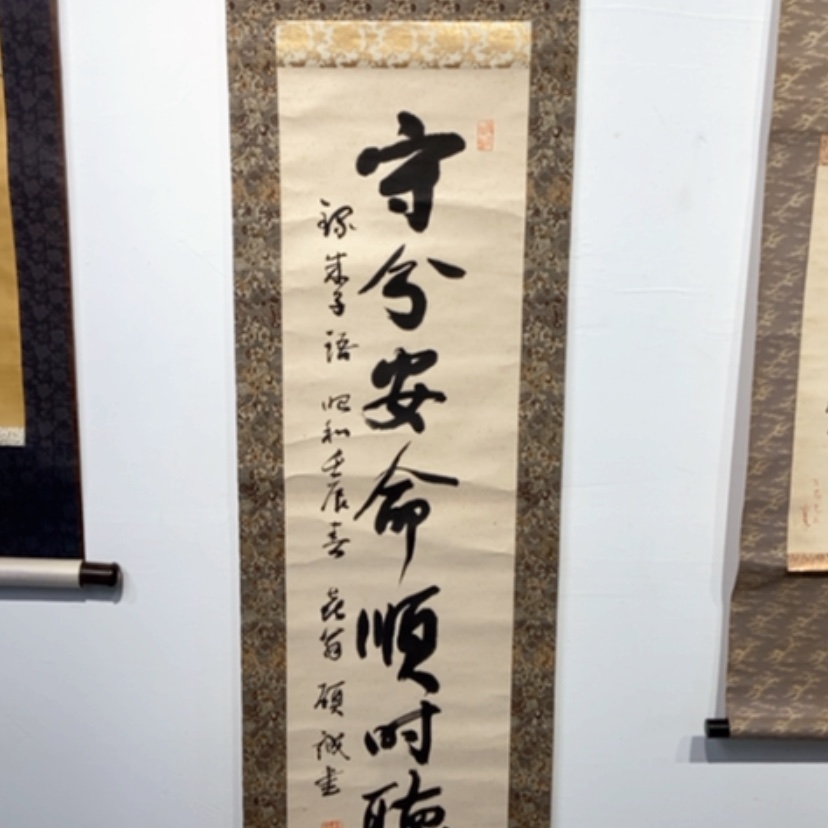 守分安命順时聴
録朱子語 昭和壬辰春 翁碩誠書